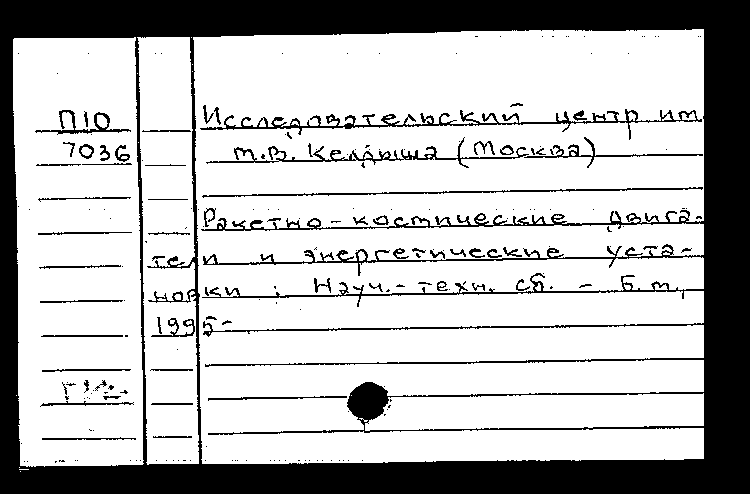 П10
7036
Исследовательский центр им.
М.В. Келдыша (Москва)
Ракетно-космические двига-
тели и энергетические уста-
новки : Науч.-техн. сб. - Б.м.,
1995-